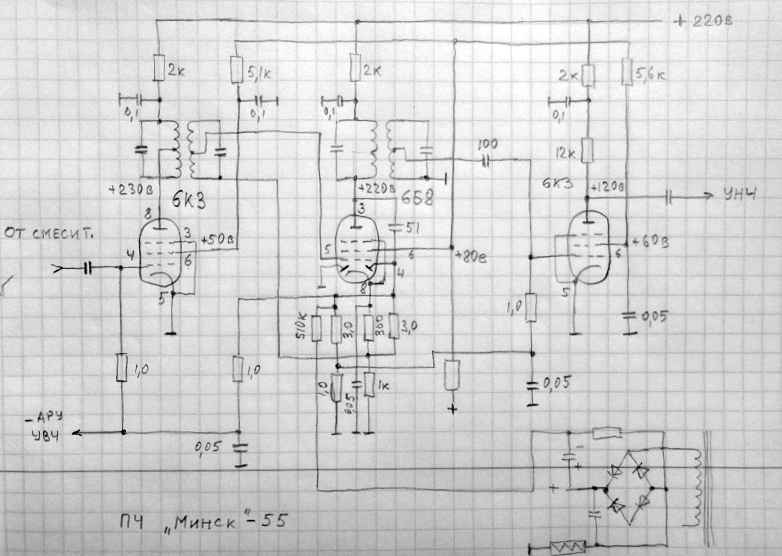 + 220В
2к
5,1к
2к
2к
5,6к
0,1
0,1
0,1
0,1
12к
100
+230В
6К3
+220В
6Б8
6К3
+120В
УНЧ
8
3
51
ОТ СМЕСИТ.
3
+50В
4
6
5
6
+80В
4
+60В
6
5
8
5
510К
3,0
300
3,0
1,0
0,05
1,0
1,0
1,0
0,05
1к
0,05
+
-АРУ
УВЧ
0,05
-
+
+
ПЧ „Минск"-55